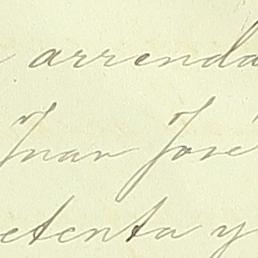 arrenda
Juan José
etenta y